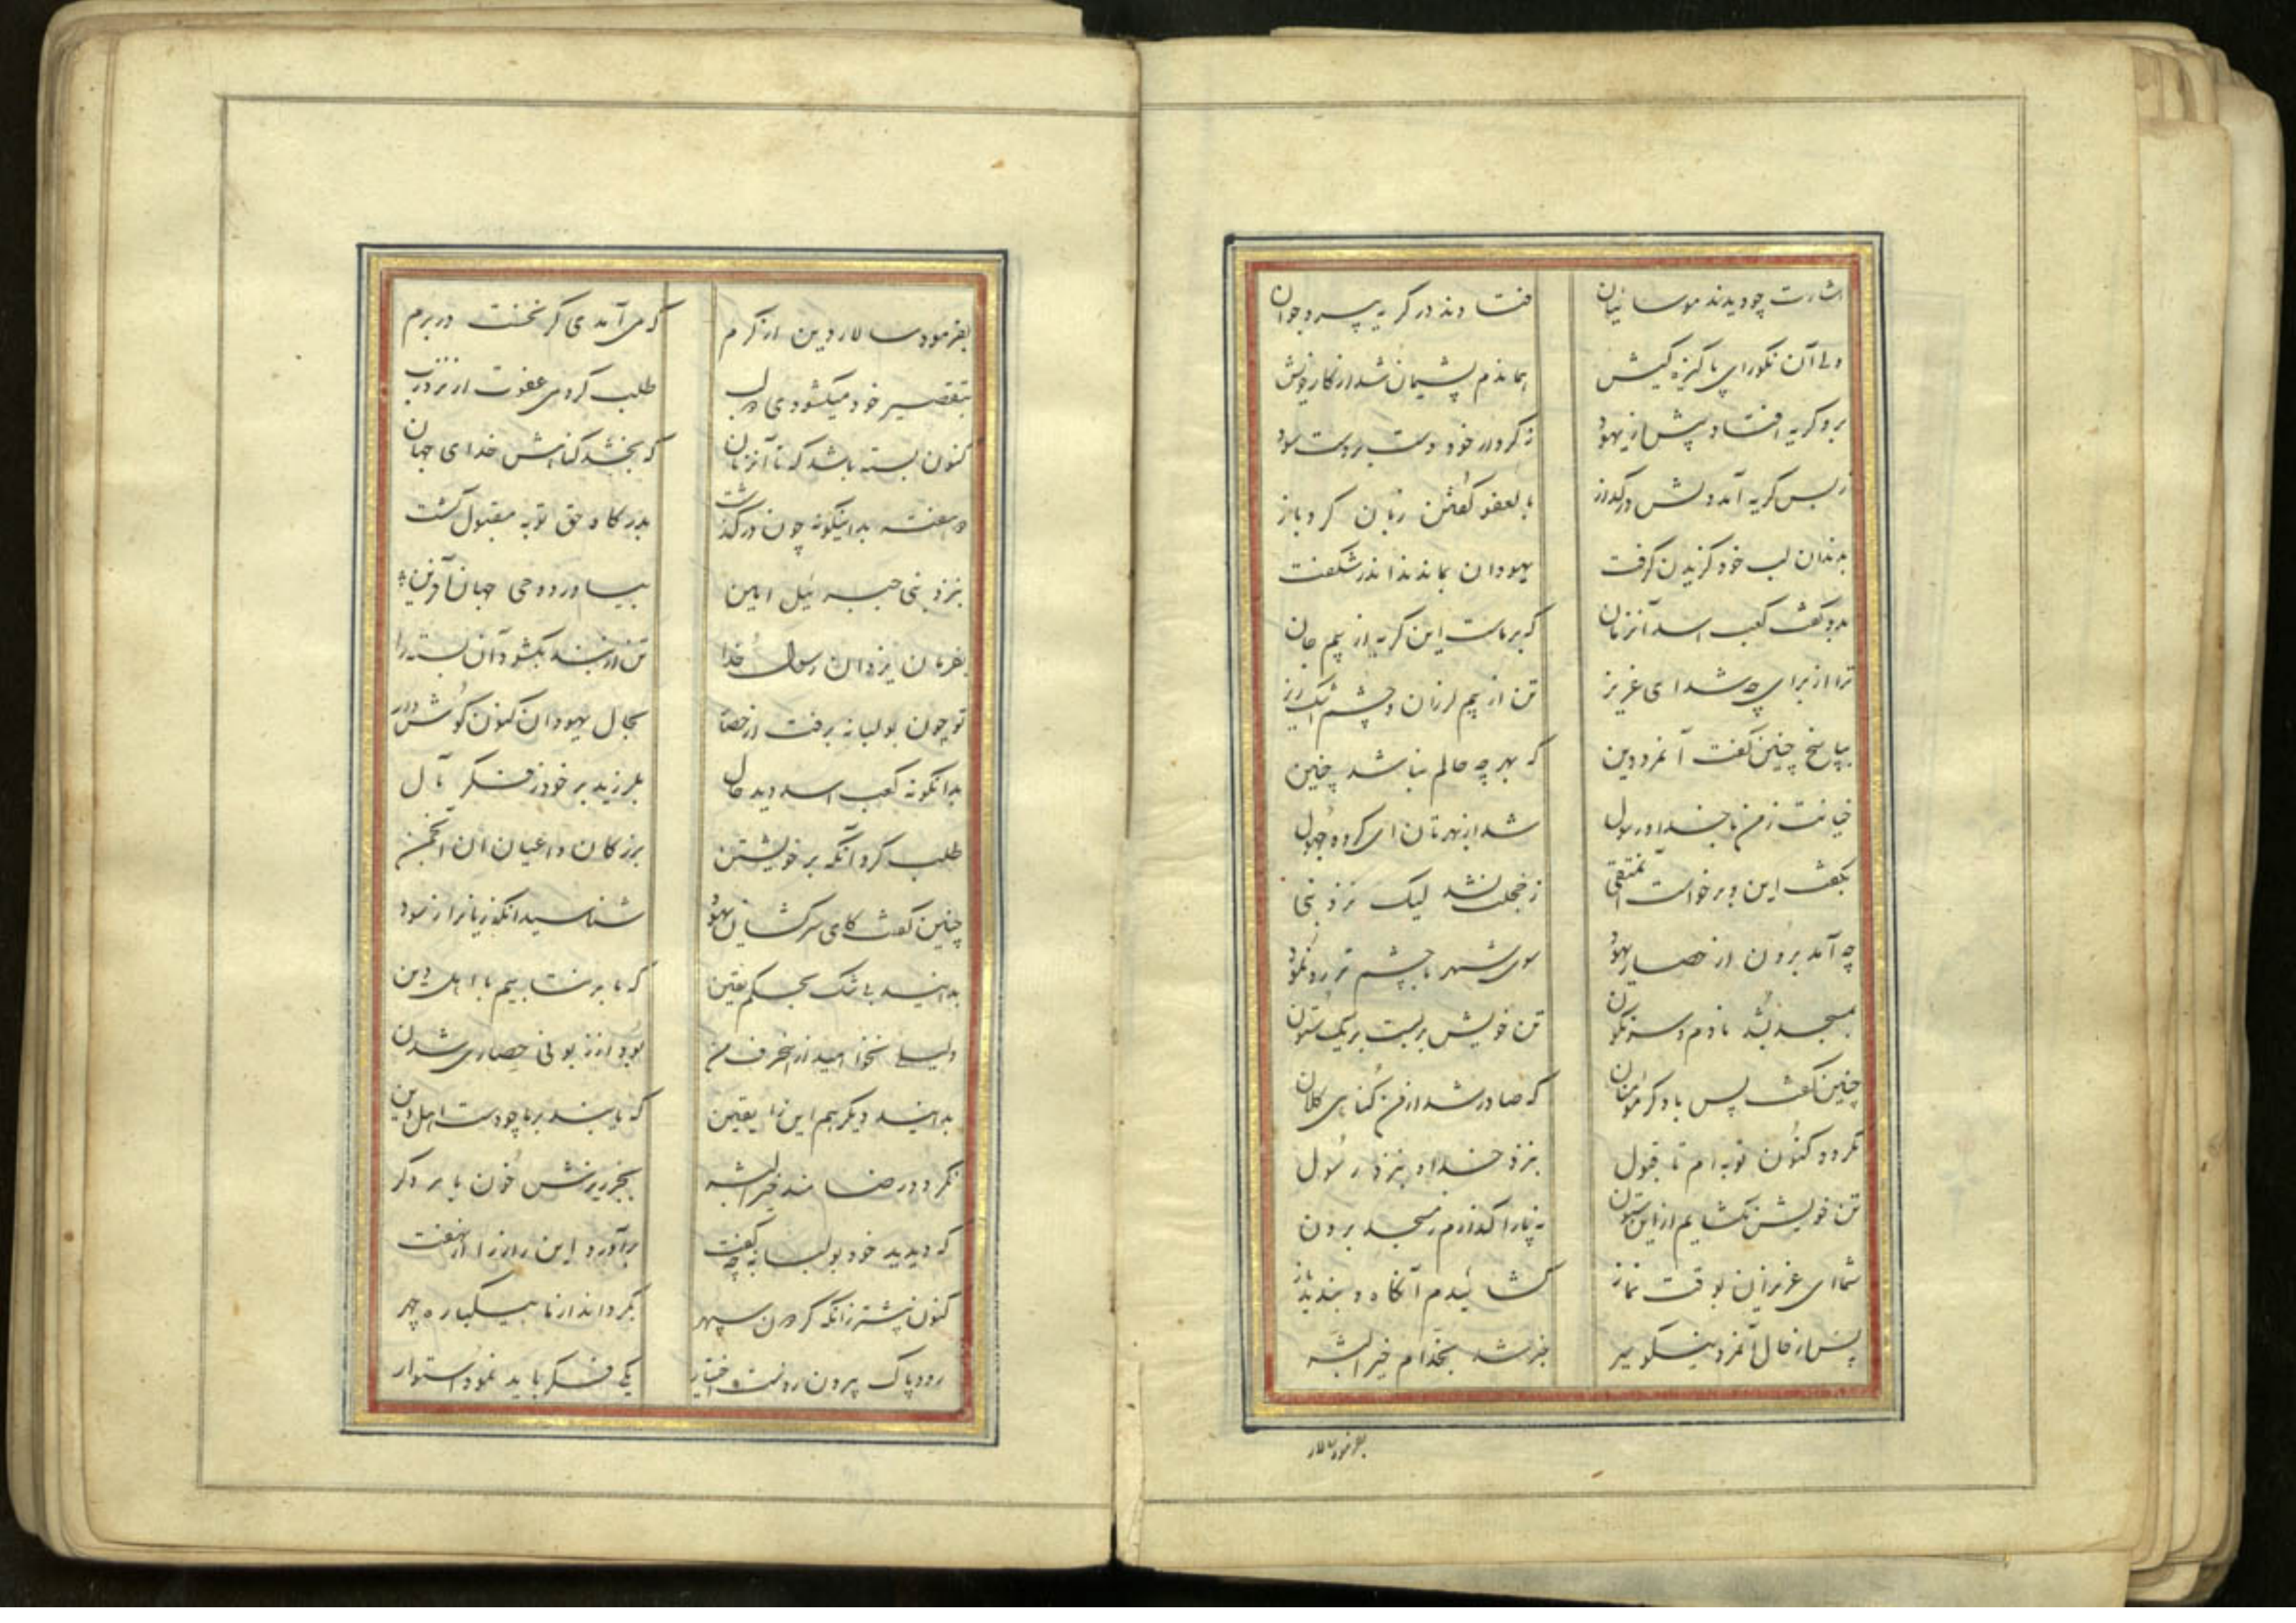 اشارت چو دیدند موسائیان فتادند در گریه پیر و جوان
ولی آن نکورای پاکیزه کیش هماندم پشیمان شد از کار خویش
برو گریه افتاد پیش از یهود ز کردار خود دست بر دست سود
ز بس گریه آمد دلش در گداز بالعفو گفتن زبان کرد باز
بدندان لب خود گزیدن گرفت یهودان بماندند اندر شگفت
بدو گفت کعب اسد آنزمان که بر ماست این گریه از بیم جان
ترا از برای چه شد ای عزیز تن از بیم لرزان و چشم اشک ریز
بپاسخ چنین گفت آنمرد دین که بهر چه حالم نباشد چنین
خیانت ز من با خدا و رسول شد از بهرتان ای گروه جهول
بگفت این و برخواست آن متقی ز خجلت نشد لیک نزد نبی
چه آمد برون از حصار یهود سوی شهر با چشم تر رو نمود
بمسجد بشد نادم و سرنگون تن خویش بربست بر یک ستون
چنین گفت پس با دگر مؤمنان که صادر شد از من گناهی کلان
نگردد کنون توبه ام تا قبول بنزد خدا و بنزد رسول
تن خویش نگشایم از این ستون نه پا را گذارم ز مسجد برون
شما ای عزیزان بوقت نماز گشائیدم آنگاه و بندید باز
پس از حال آنمرد نیکو سیر خبر شد بخدام خیر البشر
بفرمود سالار
بفرمود سالار دین از کرم که می آمدی گر نخست در برم
بتقصیر خود میکشودی دو لب طلب کردمی عفوت از نزد رب
کنون بسته باشد که تا آنزمان که بخشد گناهش خدای جهان
دو هفته بداینگونه چون در گذشت بدرگاه حق توبه مقبول گشت
بنزد نبی جبرئیل امین بیاورد وحی جهان آفرین
بفرمان یزدان رسول خدا تن از بند بگشود آن بسته را
تو چون بولبابه برفت از حصار بحال یهودان کنون گوش دار
بدانگونه کعب اسد دید حال بلرزید بر خود ز فکر مآل
طلب کرد آنگه بر خویشتن بزرگان و اعیان آن انجمن
چنین گفت کای سرکشان یهود شناسید آنگه زیانرا ز سود
بدانید بی شک بحکم یقین که ما برنتابیم با اهل دین
دلیلی نخواهید از حرف من بود از زبونی حصاری شدن
بدانید دیگر هم این را یقین که یابند بر ما چو دست اهل دین
نگردد رضامند خیر البشر بجز ریزش خون ما بر دگر
که دیدید خود بولبابه چه گفت برآورد این راز را از نهفت
کنون پیشتر زانکه گردون سپهر بگرداند از ما بیکباره چهر
رود پاک بیرون ز دست اختیار یکی فکر باید نمود استوار